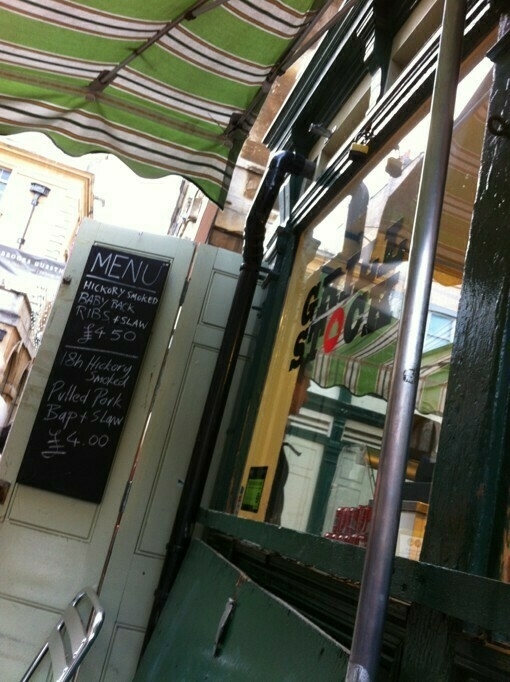 MENU
HICKORY SMOKED
BABY BACK
RIBS + SLAW
£4.50
18h Hickory
Smoked
Pulled Pork
Bap + Slaw
£4.00
GRILL
STOCK